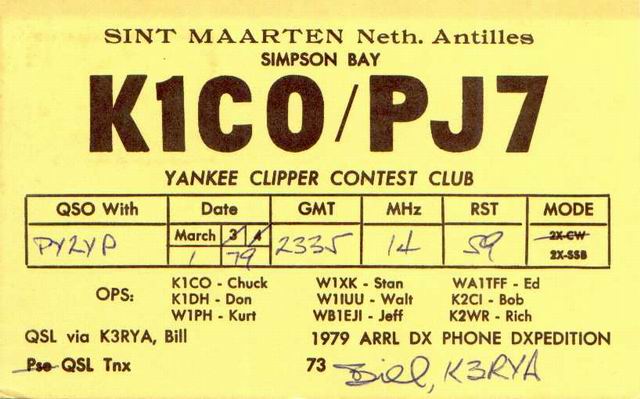 SINT MAARTEN Neth. Antilles
SIMPSON BAY
K1CO/PJ7
YANKEE CLIPPER CONTEST CLUB
QSO With Date GMT MHz RST MODE
PY2YP March 3/4 2335 14 59 2X-CW
1 79 2X-SSB
OPS: K1CO - Chuck W1XK - Stan WA1TFF - Ed
K1DH - Don W1IUU - Walt K2CI - Bob
W1PH - Kurt WB1EJI - Jeff K2WR - Rich
QSL via K3RYA, Bill 1979 ARRL DX PHONE DXPEDITION
Pse QSL Tnx 73 Bill, K3RYA